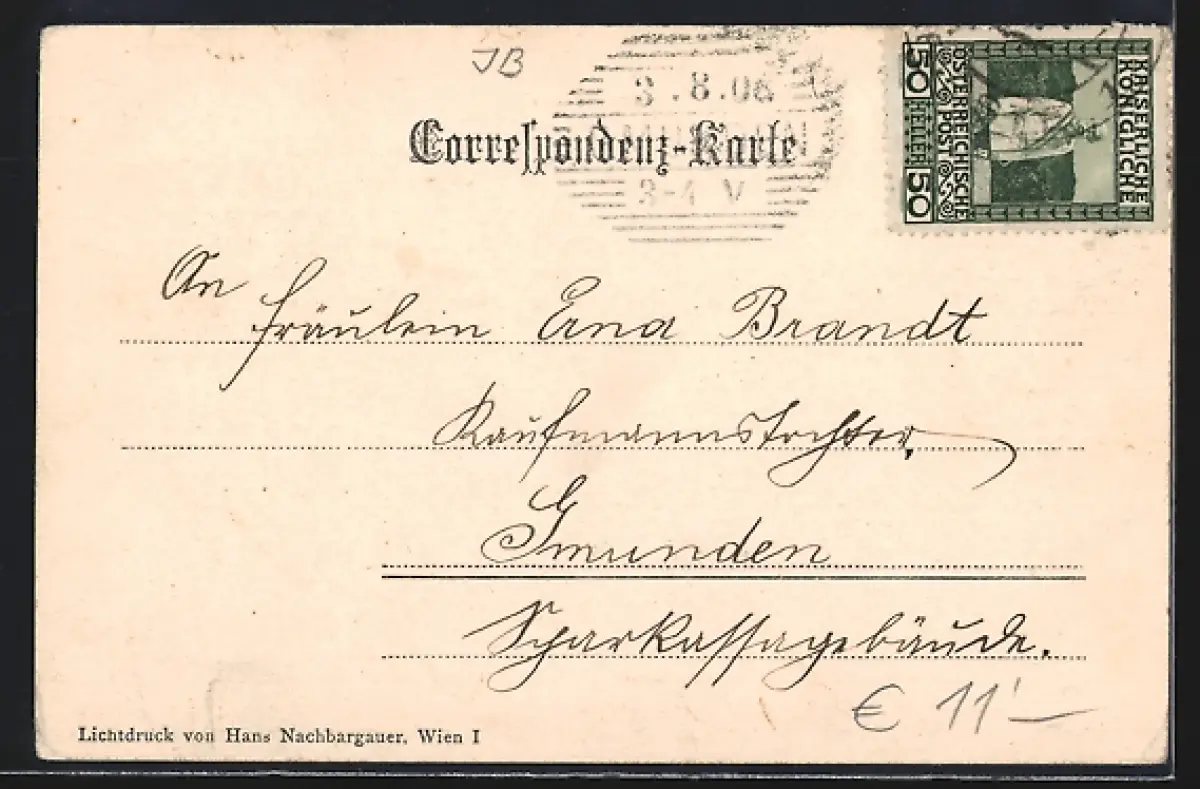 JB
3.8.08
Correspondenz-Karte
3-4 V
KAISERLICHE
KÖNIGLICHE
ÖSTERREICHISCHE
POST
50 HELLER 50
An
Fräulein Erna Brandt
Kaufmannstochter,
Gmunden
Sparkassagebäude.
€ 11'—
Lichtdruck von Hans Nachbargauer, Wien I